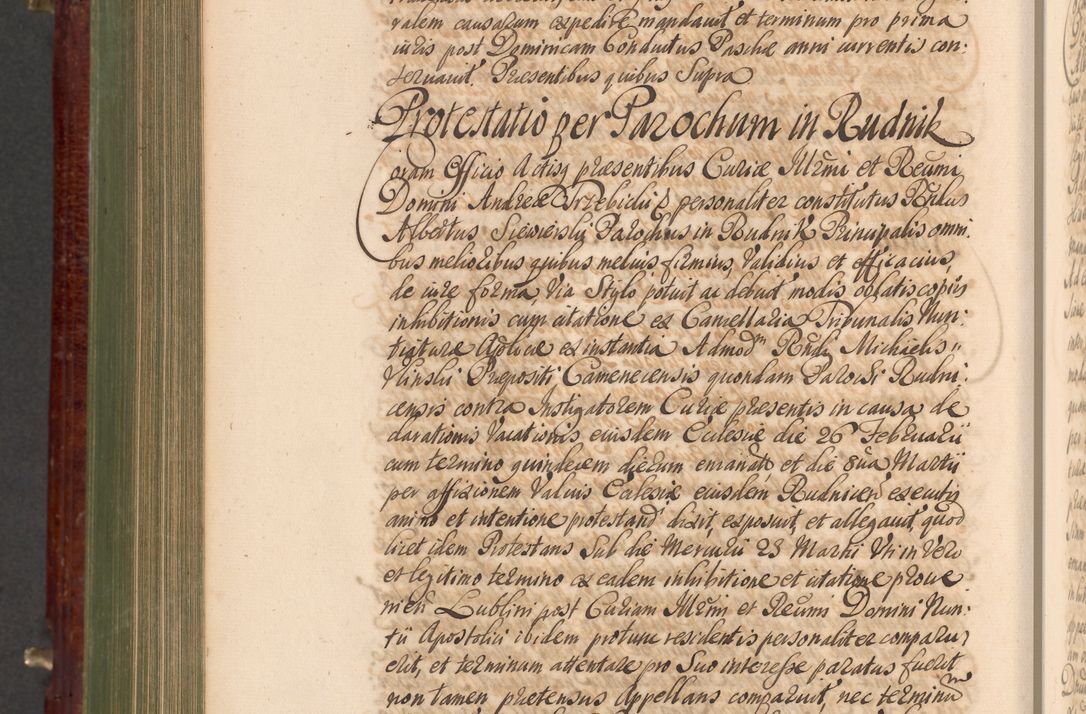 ralem causarum expedire mandavit et terminum pro prima
iuris post Dominicam Conductus Paschæ anni currentis con:
servavit. Præsentibus quibus Supra
Protestatio per Parochum in Rudnik
Coram Officio Actisq præsentibus Curiæ Illrmi et Reumi
Domini Andreæ Trzebicki personaliter constitutus Rndus
Albertus Siewierski Parochus in Rudnik Principalis omni
bus melioribus quibus melius firmius, validius et efficacius,
de iure forma, via Stylo potuit ac debuit modis oblatis copiis
inhibitionis cum citatione ex Cancellaria Tribunalis Nun:
tiaturæ Aplicæ ex instantia Admod Rndi Michaelis
Præpositi Camenecensis quondam Parochi Rudni:
censis contra Instigatorem Curiæ præsentis in causa de
clarationis vacationis eiusdem Ecclesiæ die 26 Februarii
cum termino quindecem dierum emanat, et die 8va Martii
per affixionem Valvis Ecclesiæ eiusdem Rudnicen executis
animo et intentione protestand dixit, exposuit, et allegavit, quod
licet idem Protestans Sub die Mercurii 23 Martii Uti in Vero
et legitimo termino ex eadem inhibitione et citatione prove
nien Lublini post Curiam Illrmi et Reumi Domini Nun:
tii Apostolici ibidem protunc residentis personaliter comparu
erit, et terminum attentare pro Suo interesse paratus fuerit
non tamen prætensus Appellans comparuit, nec terminum